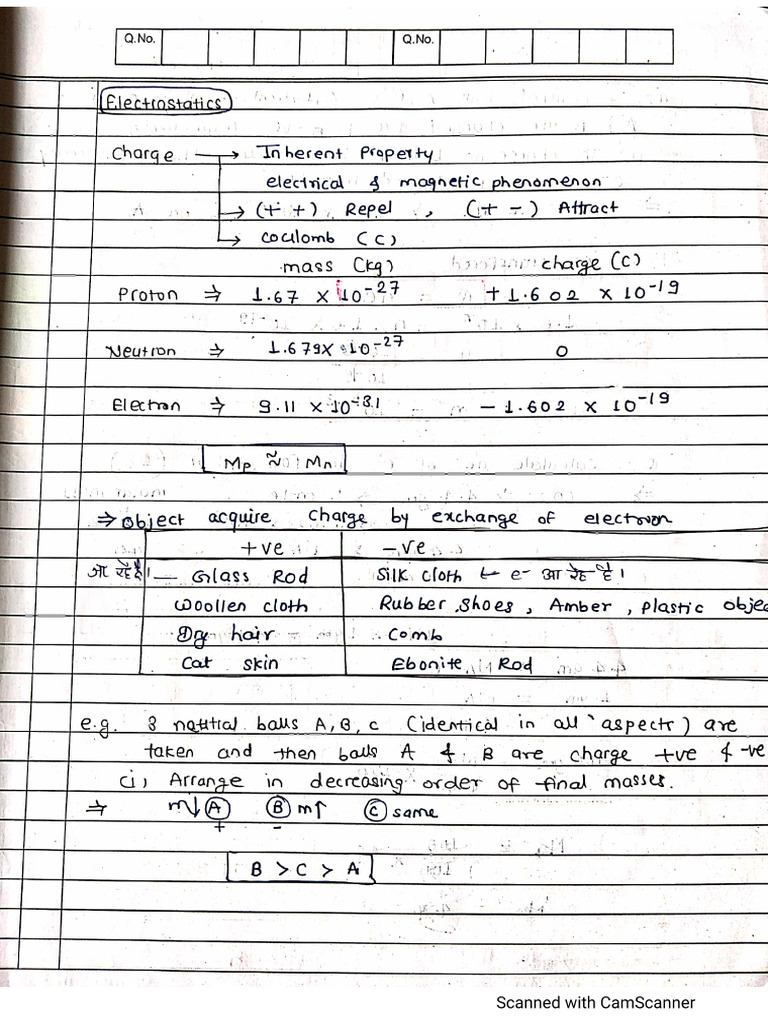 Q.No. Q.No.
Electrostatics
Charge → Inherent Property
electrical & magnetic phenomenon
→ (+ +) Repel , (+ −) Attract
→ coulomb (C)
mass (kg) charge (C)
Proton ⇒ 1.67 × 10⁻²⁷ + 1.602 × 10⁻¹⁹
Neutron ⇒ 1.679 × 10⁻²⁷ 0
Electron ⇒ 9.11 × 10⁻³¹ − 1.602 × 10⁻¹⁹
Mp ≈ Mn
⇒ object acquire charge by exchange of electron
+ve −ve
जा रहे है। — Glass Rod Silk cloth ← e⁻ आ रहे है।
Woollen cloth Rubber shoes, Amber, plastic objec
Dry hair Comb
Cat skin Ebonite Rod
e.g. 3 neutral balls A, B, C (identical in all aspects) are
taken and then balls A & B are charge +ve & -ve
(i) Arrange in decreasing order of final masses.
⇒ m↓ A B m↑ C same
+ −
B > C > A
Scanned with CamScanner